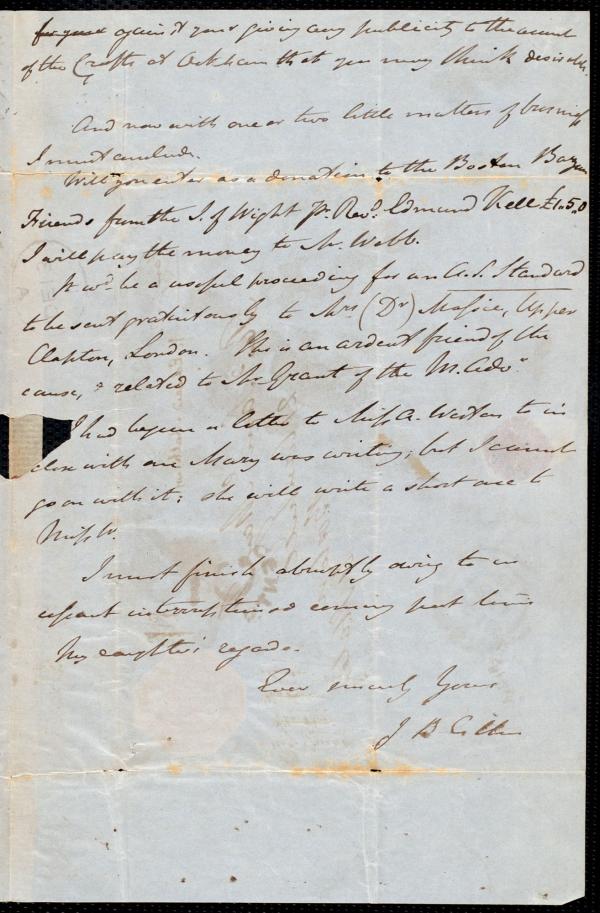 against your giving any publicity to the account
of the Crafts at Ockham that you may think desirable.
And now with one or two little matters of business
I must conclude.
Will you enter as a donation to the Boston Bazaar
Friends from the I. of Wight pr. Revd. Edmund Kell £1.5.0
I will pay the money to Mr. Webb.
It wd. be a useful proceeding for an A.S. Standard
to be sent gratuitously to Mrs (Dr) Massie, Upper
Clapton, London. She is an ardent friend of the
cause, & related to Mr Grant of the M. Advr.
I had begun a letter to Miss A. Weston to in
close with one Mary was writing; but I cannot
go on with it; she will write a short one to
Miss W.
I must finish abruptly owing to
interruptions
My daughter's regards.
Ever sincerely Yours
J B Estlin